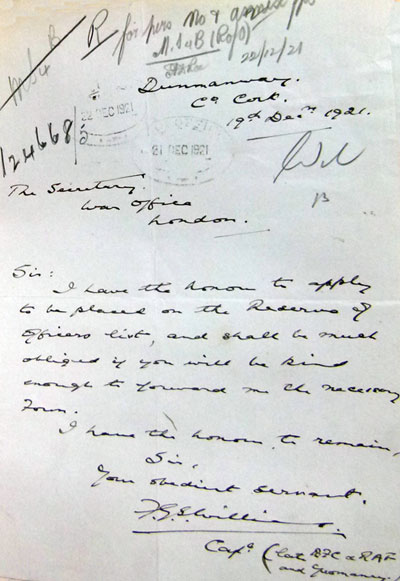 R for
M.S.4.B (Ro/O)
22/12/21
M.S.4 B
Dunmanway.
Co. Cork.
19th Decr 1921.
22 DEC 1921
21 DEC 1921
124668
B
The Secretary
War Office
London.
Sir:
I have the honour to apply
to be placed on the Reserve of
Officers list, and shall be much
obliged if you will be kind
enough to forward me the necessary
Form.
I have the honour to remain,
Sir,
Your obedient servant.
F.G.S. Williams.
Capt. (late RFC & RAF
and Yeomanry.